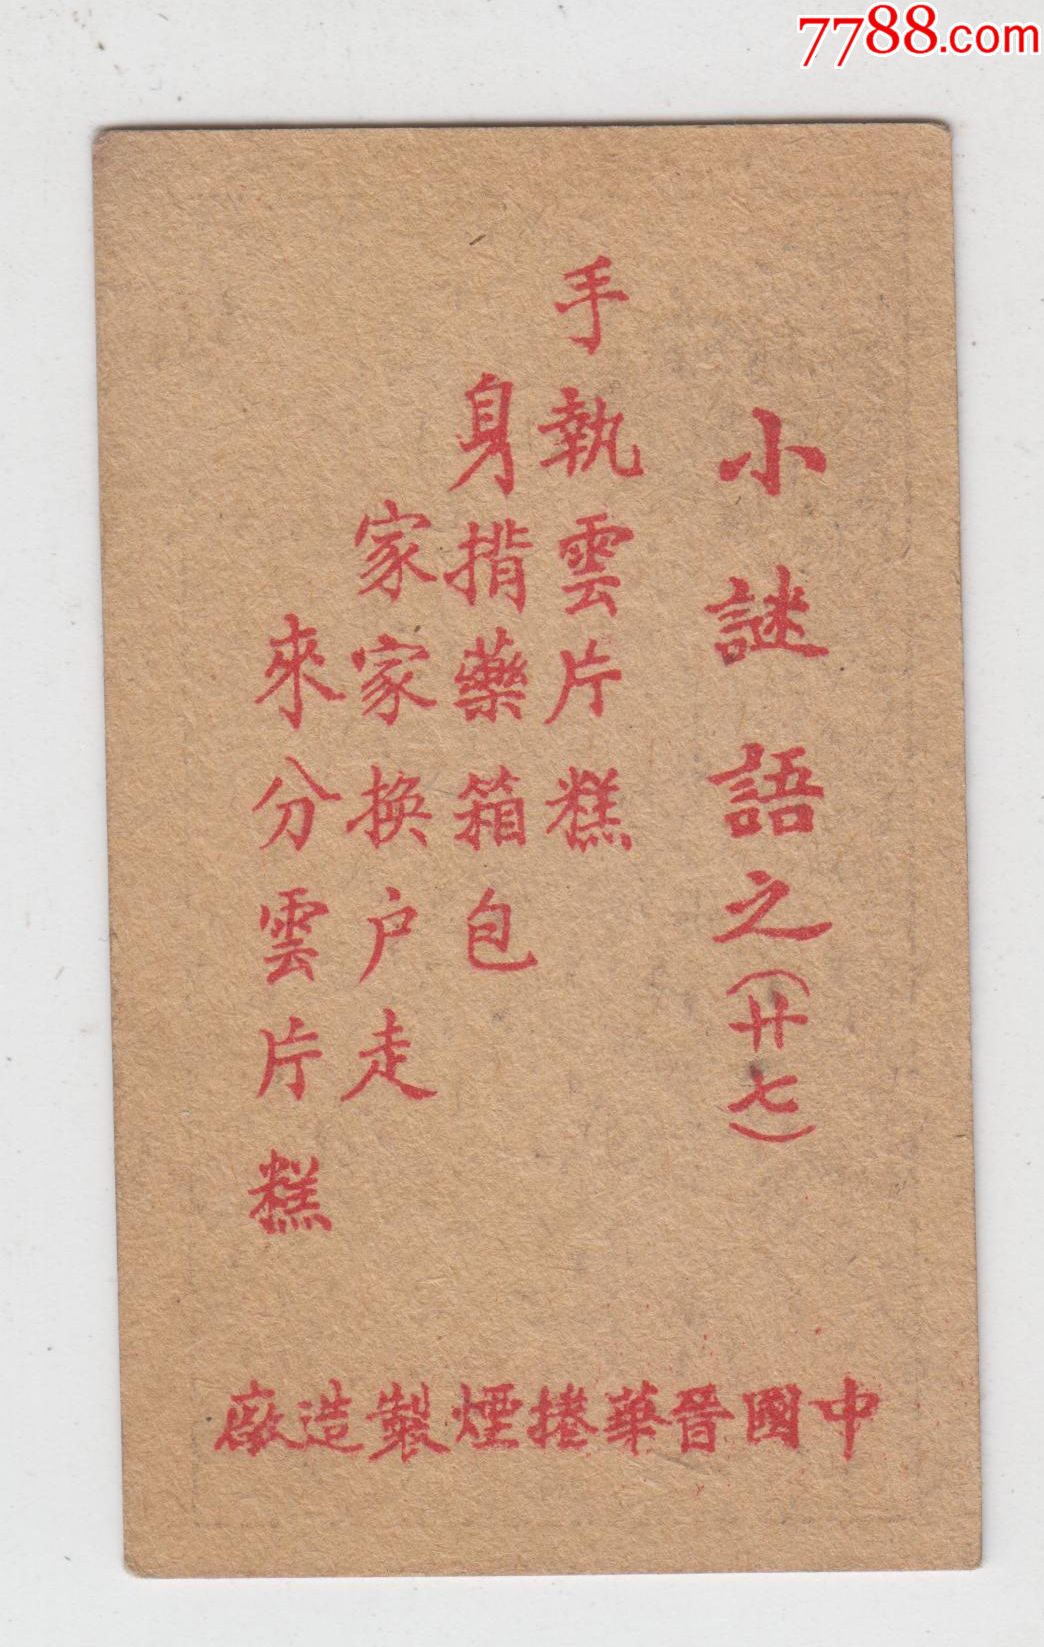 7788.com
小謎語之(廿七)
手執雲片糕
身揹藥箱包
家家換户走
來分雲片糕
中國晉華捲煙製造廠